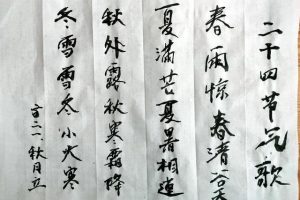 二十四节气歌
春雨惊春清谷天
夏满芒夏暑相连
秋处露秋寒霜降
冬雪雪冬小大寒
秋月五